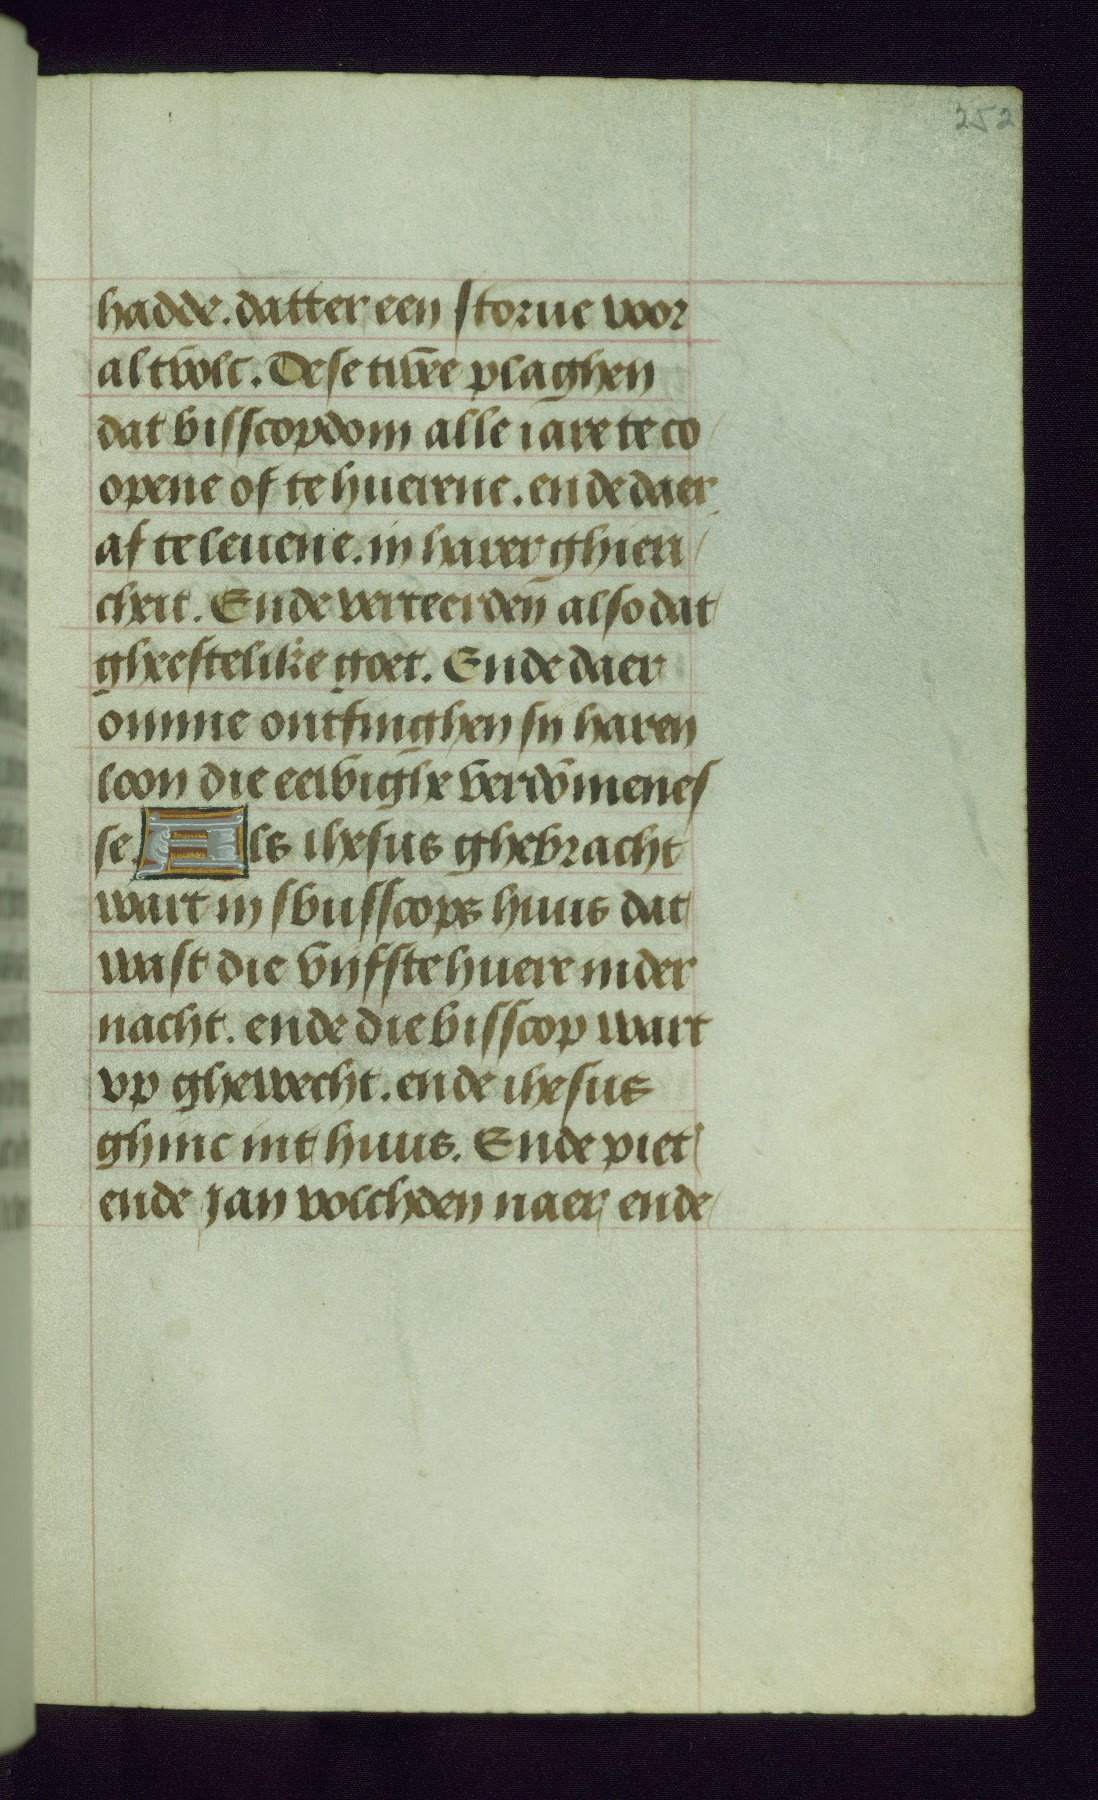 252
hadde. datter een storue voor
al tvolc. Dese twee plaghen
dat bisscopdom alle iare te co
opene of te huerene. ende daer
af te leuene. in harer ghieri
cheit. Ende verteerden also dat
gheestelike goet. Ende daer
omme ontfinghen sij haren
loon die eewighe verdōmenes
se. Als ihesus ghebracht
wart in sbusscops huus dat
wast die vijfste huere inder
nacht. ende die bisscop wart
vp ghewecht. ende ihesus
ghinc int huus. Ende piet
ende Jan volchden naer ende